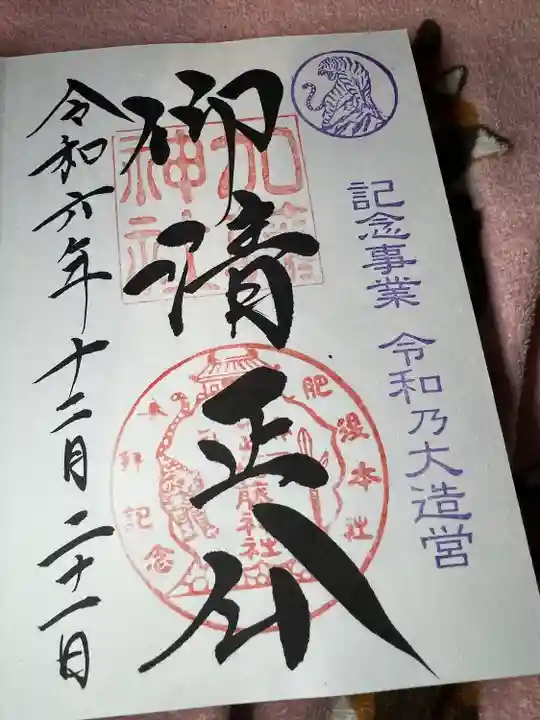 記念事業 令和乃大造営
仰清正公
加藤神社
肥後本社
加藤神社
参拝記念
令和六年十二月二十一日